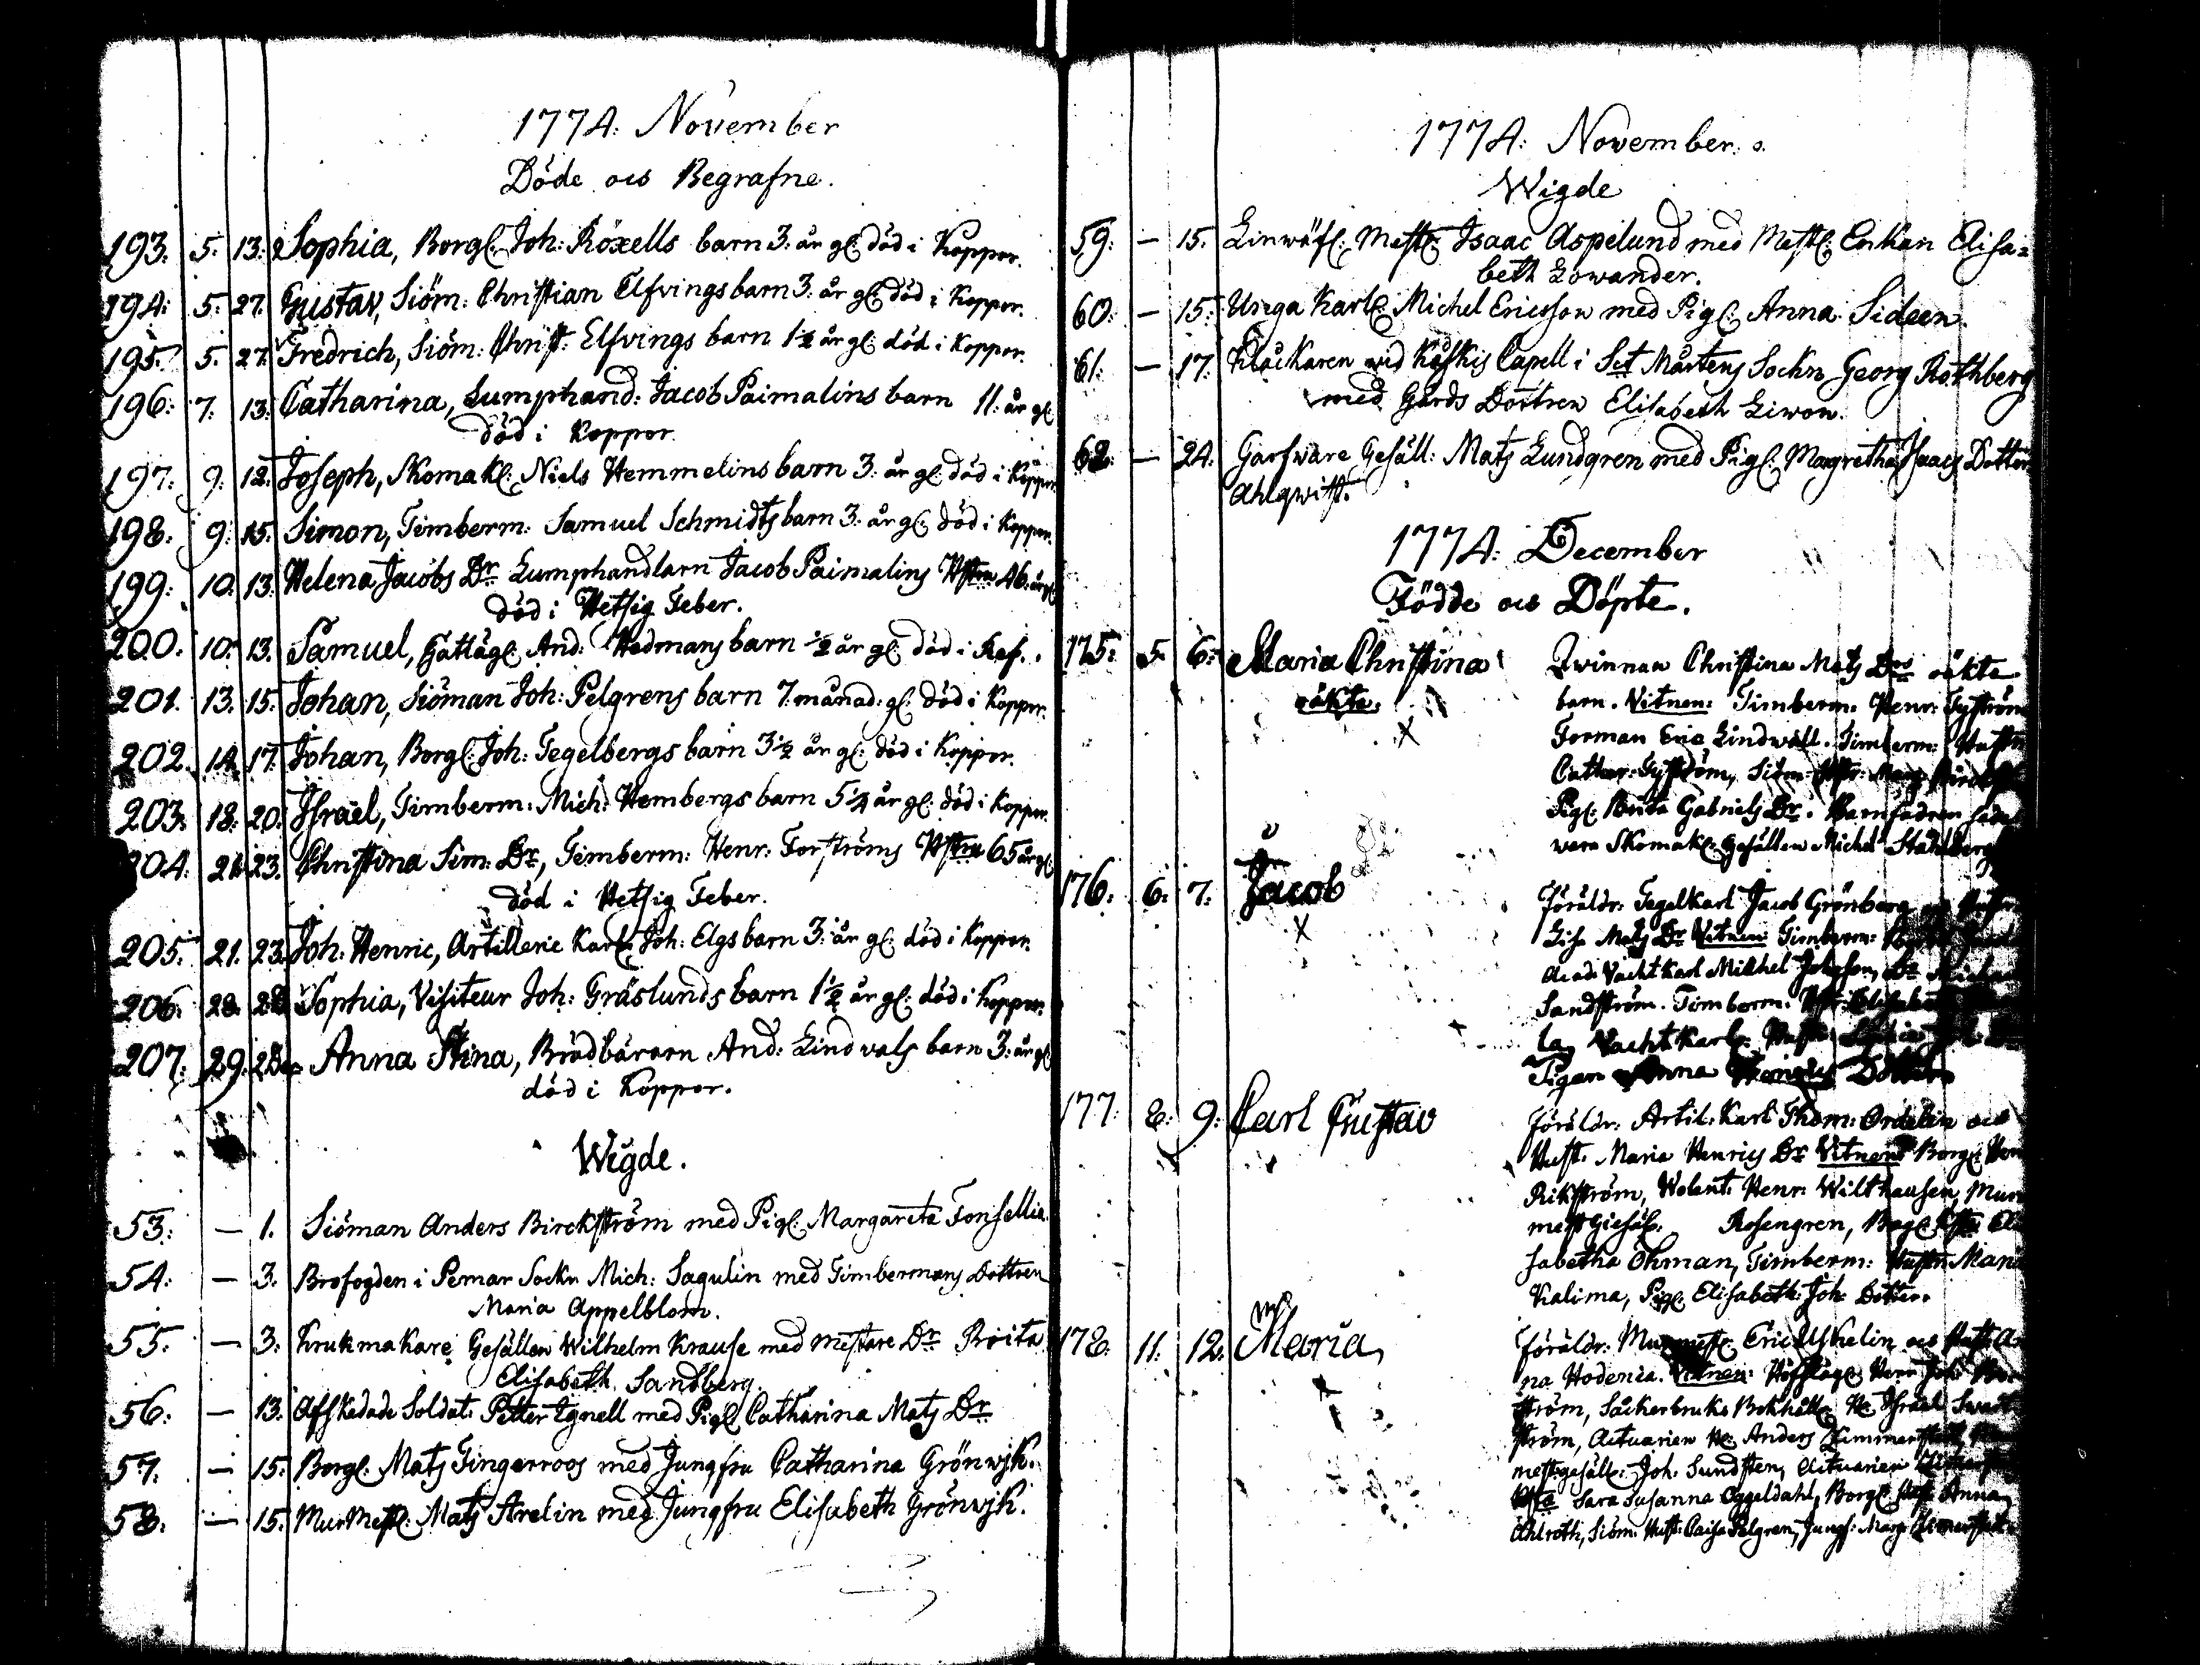 1774: November
Döde och Begrafne.
193. 5. 13. Sophia, Borgl: Joh: Röxells barn 3. år gl: död i Koppor.
194: 5. 27. Gustav, Siöm: Christian Elfvings barn 3: år gl: död i Koppor.
195. 5. 27. Fredrich, Siöm: Christ: Elfvings barn 1½ år gl: död i Koppor.
196: 7. 13. Catharina, Lumphand: Jacob Paimalins barn 11. år gl:
död i Koppor.
197: 9. 12. Joseph, Skomakl: Niels Hemmelins barn 3: år gl: död i Koppor
198. 9. 15. Simon, Timberm: Samuel Schmidts barn 3. år gl: död i Koppor.
199. 10. 13. Helena Jacobs Dr Lumphandlarn Jacob Paimalins Hstru 46. år gl:
död i Hetsig Feber.
200. 10. 13. Samuel, And: Hedmans barn ½ år gl: död i
201. 13. 15. Johan, Siöman Joh: Pelgrens barn 7. månad: gl: död i Koppor.
202. 14. 17. Johan, Borgl: Joh: Tegelbergs barn 3½ år gl: död i Koppor.
203. 18. 20. Israel, Timberm: Mich: Hembergs barn 5¼ år gl: död i Koppor.
204. 21. 23. Christina Sim: Dr, Timberm: Henr: Forströms Hstru 65 år gl:
död i Hetsig Feber.
205. 21. 23. Joh: Henric, Artillerie Karl: Joh: Elgs barn 3: år gl: död i Koppor.
206. 28. Sophia, Visiteur Joh: Gräslunds barn 1½ år gl: död i Koppor.
207. 29. Anna Stina, Brödbäraren And: Lindvals barn 3: år gl:
död i Koppor.
Wigde.
53: — 1. Siöman Anders Birckström med Pigl: Margareta Fonsellia.
54: — 3. Brofogden i Pemar Sockn Mich: Sagulin med Timbermans Dottren
Maria Appelblom.
55. — 3. Krukmakare Gesällen Wilhelm Krause med Mestare Dr Brita
Elisabeth Sandberg.
56: — 13. Afskedade Soldat: Petter Egnell med Pigl: Catharina Mats Dr
57. — 15. Borgl: Mats Tingerroos med Jungfru Catharina Grönwjk.
58. — 15. MurMestl: Mats Arelin med Jungfru Elisabeth Grönwjk.
1774: November:
Wigde
59: — 15. Linwäfl: Mestl: Isaac Aspelund med Mestl: Enkan Elisa=
beth Lowander.
60: — 15. Unga Karl: Michel Ericsson med Pigl: Anna Sideen.
61: — 17. Klåckaren wid Koskis Capell i Sct Mårtens Sockn Georg Rothberg
med Gårds Dottren Elisabeth Liwon.
62. — 24. Garfware Gesäll: Mats Lundgren med Pigl: Margretha Isaacs Dotter
Ahlqwist.
1774: December
Födde och Döpte.
175: 5. 6. Maria Christina Qwinnan Christina Mats Drs oäkta
oäkta. barn. Vitnen: Timberm: Henr: Fyström
Forman Eric Lindwall. Timberm: Hustr
Cathar: Fyström, Siöm:
Pigl: Brita Gabriels Dr. Barnfadren
vara Skomakl: Gesällen Michel Stahlberg
176. 6. 7. Jacob Föräldr: Tegelkarl Jacob Grönberg
Lisa Mats Dr Vitnen Timberm:
Acad: Vachtkarl Michel Johsson,
Sandström. Timberm:
Vachtkarl:
Pigan Anna Dotter
177. 8. 9. Carl Gustav Föräldr: Artil: Karl Thom: Ordelin och
Hust. Maria Henrics Dr Vitnen Borgl:
Rikström, Wolent: Henr: Wilthausen, Mur
mest Giesäl: Rosengren, Borgl:
sabetha Öhman, Timberm: Hustr Mari
Kalima, Pigl: Elisabeth Joh: Dotter.
178. 11. 12. Maria, Föräldr: Murmestl: Eric och
na Hodenia. Vitnen:
ström, Såckerbruks Bokhåll: Israel
ström, Actuarien Anders
mestgesäll: Joh: Sundsten, Actuarien
Sara Susanna Oggeldahl, Borgl: Anna
Ahlroth, Siöm: Hust: Caisa Pelgren, Jungf: Marg: